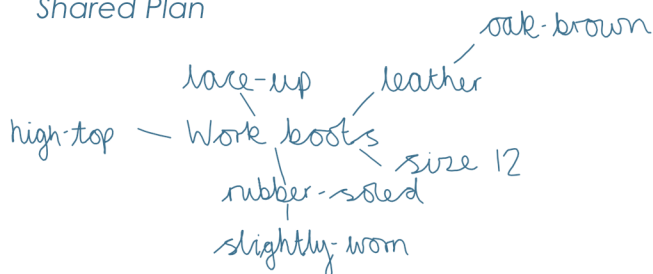 Shared Plan
oak-brown
lace-up
leather
high-top
Work boots
size 12
rubber-soled
slightly-worn